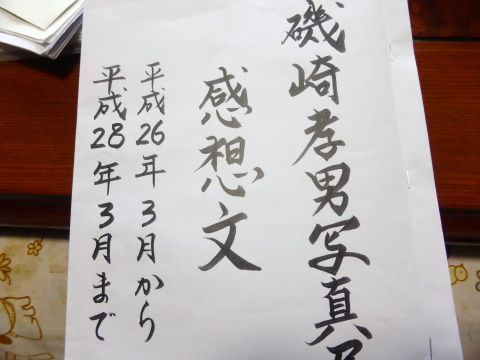 磯崎孝男写真
感想文
平成26年3月から
平成28年3月まで